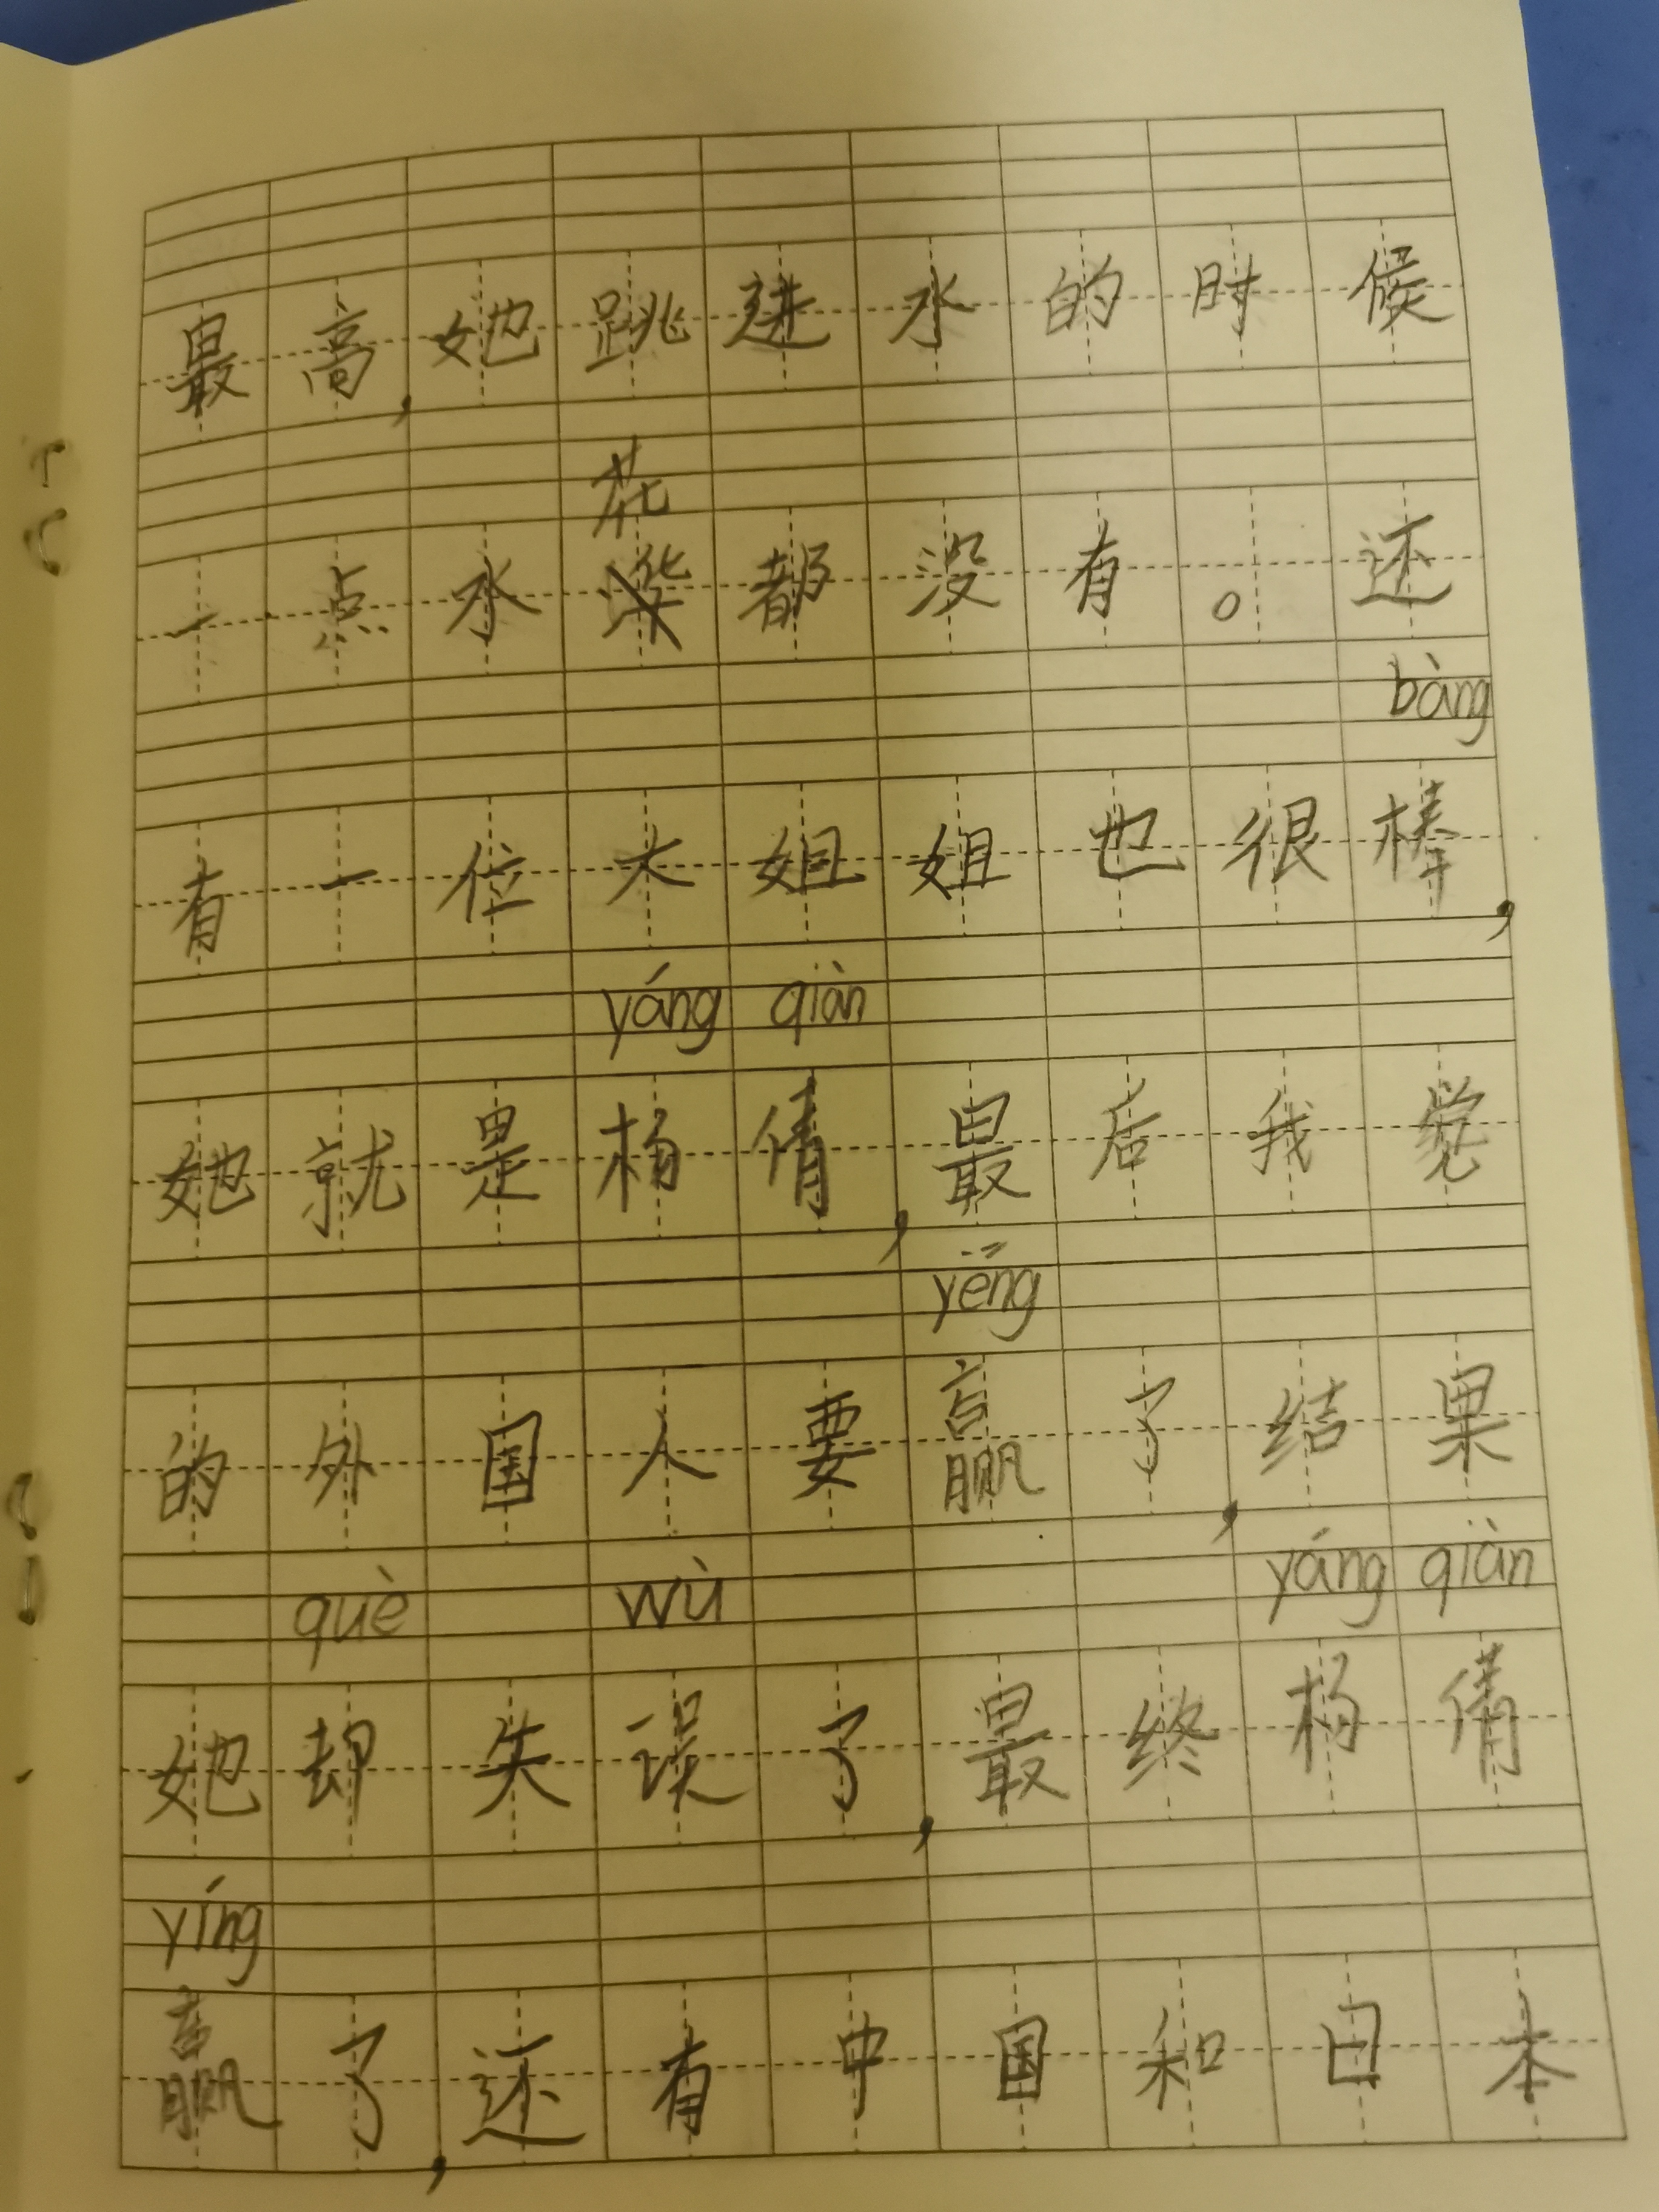 最高,她跳进水的时候
花
一点水都没有。还
bàng
有一位大姐姐也很棒,
yáng qiàn
她就是杨倩,最后我觉
yēng
的外国人要赢了,结果
què wù yáng qiàn
她却失误了,最终杨倩
yíng
赢了,还有中国和日本